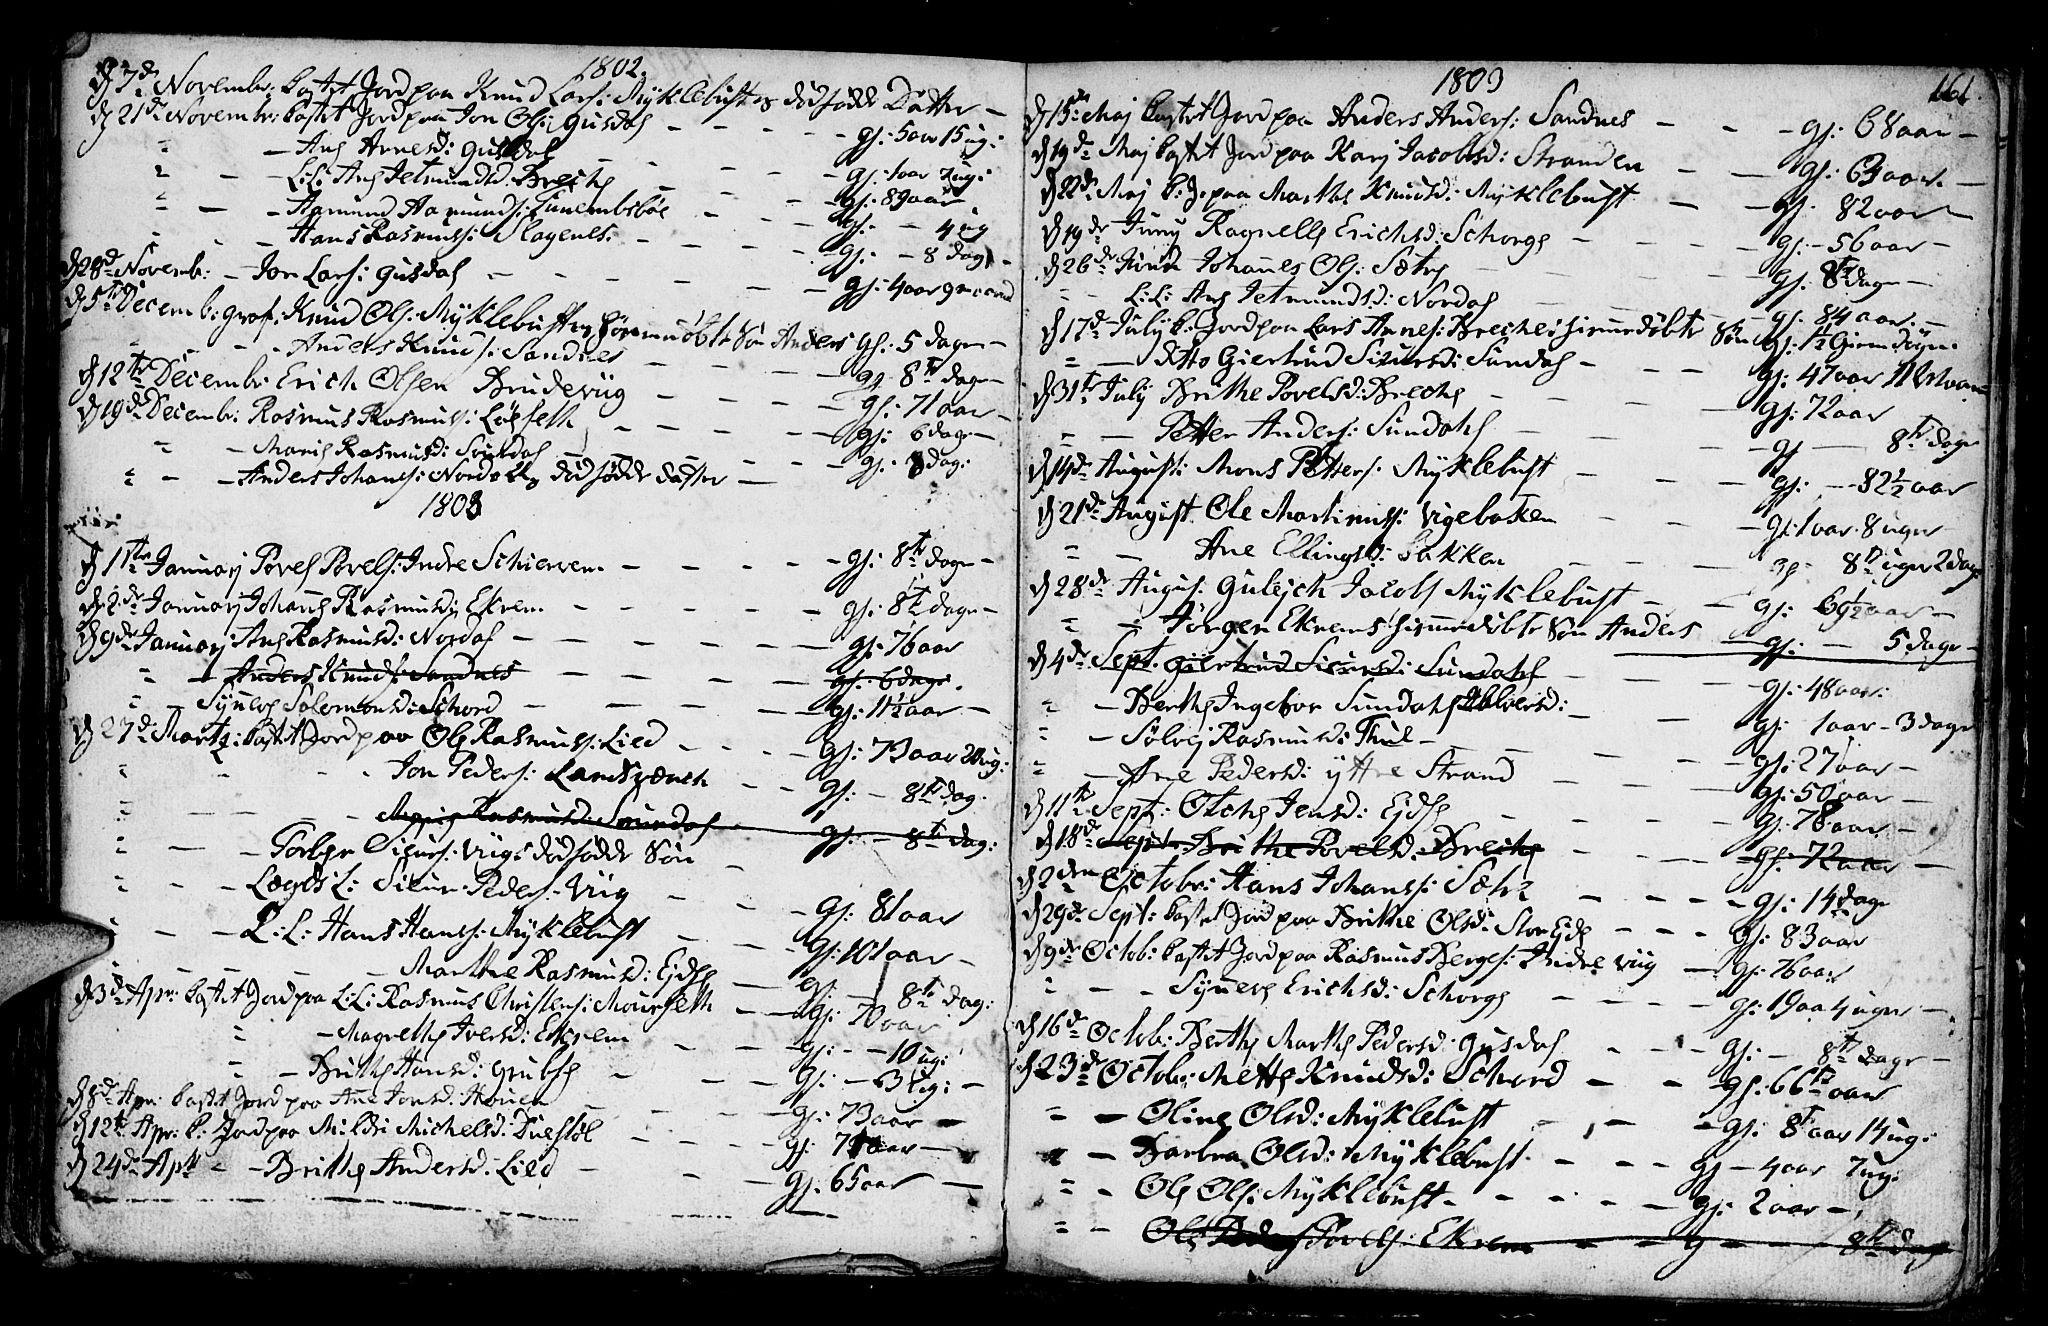 1802.
D 7de Novembr: Castet Jord paa Knud Lars: Myklebusts dødfødde Datter —
D 21de Novembr: Castet Jord paa Jon Ols: Gusdal — — gs: 5 aar 15 ug:
" — Ane Arnesd: Gusdal — — gs: 1 aar ug:
" — L:L: Ane Jetmundsd: Breche — — gs: 89 aar
" — Aamund Aamunds: — — gs: — 4 ug
— Hans Rasmuss: Slagnes — — gs: — 8 dage —
D 28de Novemb: — Jon Lars: Gusdal — — gs: 4 aar 9 maaned
D 5te Decemb: graf: Knud Ols: Myklebust hiemedøbte Søn Anders gs: 5 dage —
— Anders Knuds: Sandnes — gs 8te dage —
D 12te Decemb: Erich Olsen Brudeviig — — gs: 71 aar —
D 19de Decemb: Rasmus Rasmuss: Løfseth — — gs: 6 dage —
" — Marie Rasmusd: Sundal — — gs: 8 dag:
" — Anders Johans: Nordals dødfødde datter —
1803
D 1ste Januarj Povel Povels: Indre Schierven — — gs: 8te dage —
D 2de Januarj Johane Rasmusd: Ekrem — — gs: 8te dage —
D 9de Januarj Ane Rasmusd: Nordal — — gs: 76 aar
" — Anders Knuds: Sandnes — — gs: 6 dage.
" — Synneve Salomonsd: Schord — — gs: 11½ aar —
D 27de Marts: Castet Jord paa Ole Rasmuss: Lied — — gs: 73 aar 20 ug:
" — Jon Peders: Landsværck — — gs: — 8te dag:
" — Rasmusd: Sundal — gs: — 8te dag:
" — Torber Siurs: Viigs dødfødde Søn —
" — Lægds L: Siur Peders: Viig — — gs: 81 aar
" — L:L: Hans Hans: Myklebust — — gs: 101 aar —
— Marthe Rasmusd: Ejde — gs — 8te dag:
D 3de Apr: Castet Jord paa L:L: Rasmus Christens: Mourseth — gs: 70 aar
" — Magrethe Iversd: Ekrem — — gs: — 10 ug:
" — Brithe Hansd: Grubse — — gs: — 6 ug: —
D 8de Apr: Castet Jord paa Ane Jonsd: Houen — — gs: 73 aar —
D 12te Apr: C: Jord paa Mildri Michelsd: Duestøl — — gs: aar —
D 24de Apr — Brithe Andersd: Lied — — gs. 65 aar —
1803
161.
D 15de Maj Castet Jord paa Anders Anders: Sandnes — — gs: 68 aar —
D 19de Maj Castet Jord paa Karj Jacobsd: Stranden — — gs: 63 aar. —
D 22de Maj C: J: paa Marthe Knudsd: Myklebust — — gs: 82 aar —
D 19de Junj Ragnelle Erichsd: Schorge — — gs: — 56 aar —
D 26de Junij Johanes Ols: Sætre — — gs: 8te dage —
" — L:L: Ane Jetmundsd: Nordal — — gs: 84 aar: —
D 17de Julj C: Jord paa Lars Arnes: Breches hiemedøbte Søn gs: 1½ døgn:
" — ditto Giertrud Siursd: Sundal — — gs: 47 aar 11
D 31te July Brithe Povelsd: Breche — — gs: 72 aar
" — Petter Anders: Sundahl — — gs — 8te dage
D 14de August: Mons Petters: Myklebust — — gs: — 82½ aar
D 21de August Ole Martinuss: Vigebakken — — gs: 1 aar. 8 uger —
" — Ane Ellingsd: Bakken — — gs — 8te uger 2 dage
D 28de August Gulejch Jacobs Myklebust — — gs: 69½ aar —
" — Jørgen Ekrems hiemedøbte Søn Anders — gs: — 5 dage —
D 4de Sept. Giertrud Siursd: Sundahl — — gs: 48 aar:
" — Berthe Ingebor Sundahl Halversd: — — gs: 1 aar — 3 dage
" — Sølvej Rasmusd: Thue — — gs: 27 aar —
" — Ane Pedersd: Yttre Strand — — gs: 50 aar —
D 11te Sept: Oleche Jensd: Ejde — — gs: 78 aar —
D 18de Sept. Brithe Povelsd: Breche — — gs: 72 aar —
D 2den Octobr: Hans Johans: Sætre — — gs: 14 dage
D 29de Sept: Castet Jord paa Brithe Olsd: Stor Ejde — — gs: 83 aar
D 9de Octob: Castet Jord paa Rasmus Berges: Indre Viig — gs: 76 aar
" — Synneve Erichsd: Schorge — — gs: 19 aa 4 uger —
D 16de Octob: Berthe Marthe Pedersd: Gusdal — — gs: — 8te dage —
D 23de Octob: Mette Knudsd: Schord — — gs: 66te aar
" — Oline Olsd: Myklebust — — gs: 8te aar 14 ug:
" — Barbra Olsd: Myklebust — — gs — 4 aar 7 ug:
" — Ole Ols: Myklebust — — gs: 2 aar —
" — Ole Povels: Ekrem — — g — 8te dage